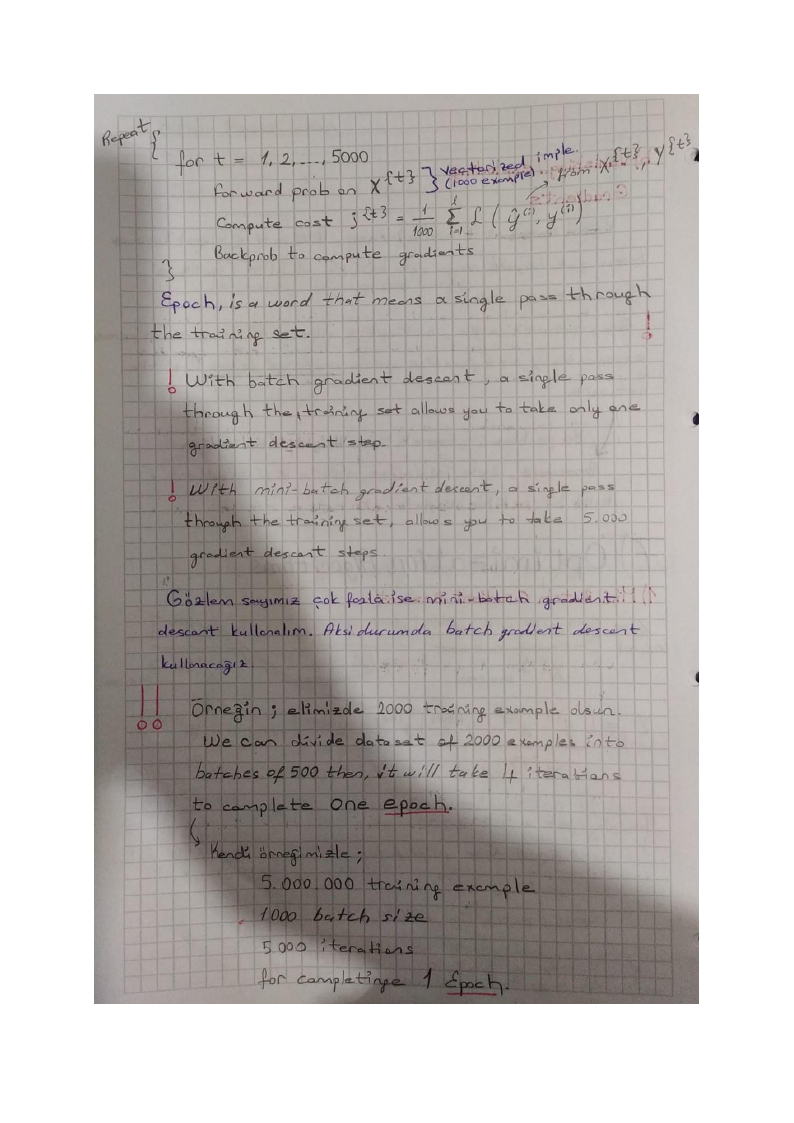 Repeat {
for t = 1, 2, ..., 5000
Forward prob on X^{t} } vectorized imple. (1000 example)
from X^{t}, Y^{t}
Compute cost J^{t} = 1/1000 Σ_{i=1}^{l} L(ŷ^(i), y^(i))
Backprob to compute gradients
}
Epoch, is a word that means a single pass through
the training set. !
! With batch gradient descent, a single pass
through the training set allows you to take only one
gradient descent step.
! With mini-batch gradient descent, a single pass
through the training set, allows you to take 5.000
gradient descant steps.
Gözlem sayımız çok fazla ise mini-batch gradient !!!
descent kullanalım. Aksi durumda batch gradient descent
kullanacağız.
!! Örneğin ; elimizde 2000 training example olsun.
We can divide dataset of 2000 examples into
batches of 500 then, it will take 4 iterations
to complete one epoch.
Kendi örneğimizle ;
5.000.000 training example
1000 batch size
5.000 iterations
for completinge 1 Epoch.